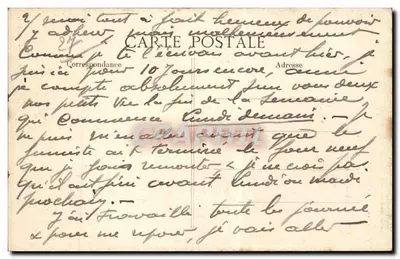 2/ moi tout à fait heureux de pouvoir
y adhérer, mais malheureusement
CARTE POSTALE
Comme je te l'écrivais avant hier, je
Correspondance
Adresse
suis ici pour 10 jours encore, aussi
je compte absolument sur vous deux
vos petits vers la fin de la semaine
qui commence lundi demain. Je
ne puis m'en aller avant que le
fumiste ait terminé le four neuf
que je fais remonter & je ne crois pas
qu'il ait fini avant lundi ou mardi
prochain.
J'ai travaillé toute la journée
& pour me reposer, je vais aller